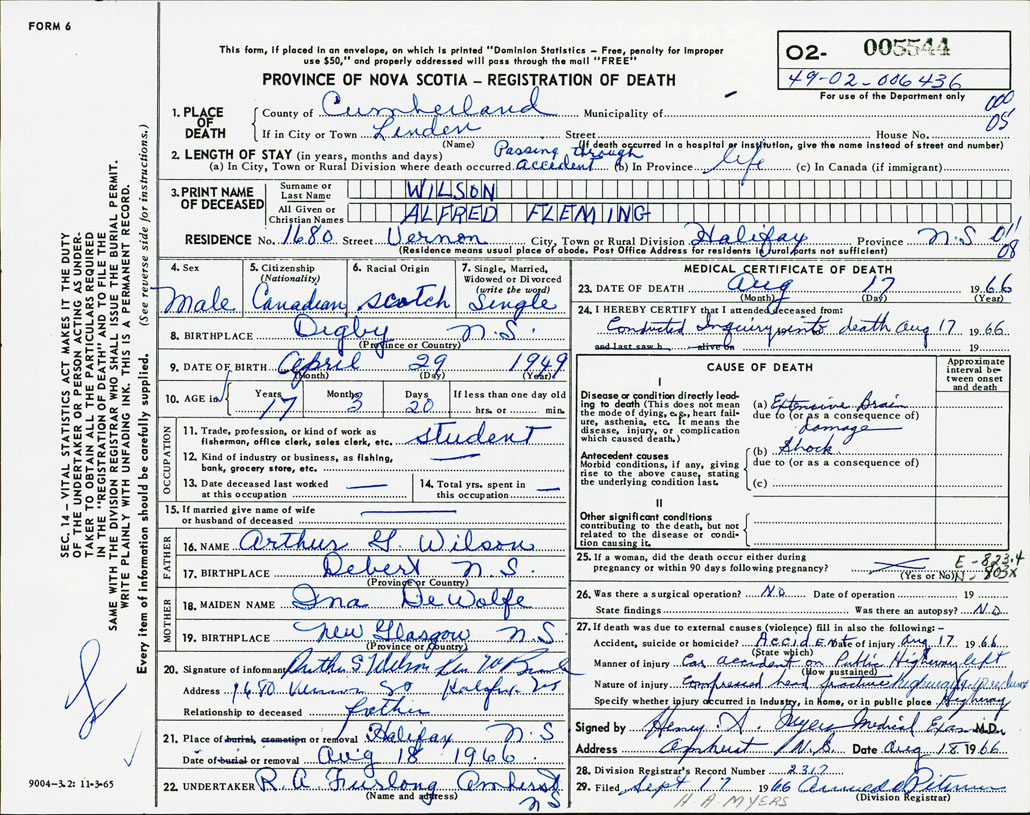 FORM 6
This form, if placed in an envelope, on which is printed "Dominion Statistics – Free, penalty for improper
use $50," and properly addressed will pass through the mail "FREE"
PROVINCE OF NOVA SCOTIA – REGISTRATION OF DEATH
02- 005544
49-02-006436
For use of the Department only
000
05
1. PLACE OF DEATH
County of Cumberland Municipality of –
If in City or Town Linden Street House No.
(Name) (If death occurred in a hospital or institution, give the name instead of street and number)
2. LENGTH OF STAY (in years, months and days) Passing through
(a) In City, Town or Rural Division where death occurred accident (b) In Province life (c) In Canada (if immigrant)
3. PRINT NAME OF DECEASED
Surname or Last Name WILSON
All Given or Christian Names ALFRED FLEMING
RESIDENCE No. 1680 Street Vernon City, Town or Rural Division Halifax Province N.S 011
(Residence means usual place of abode. Post Office Address for residents in rural parts not sufficient) 08
4. Sex
Male
5. Citizenship (Nationality)
Canadian
6. Racial Origin
Scotch
7. Single, Married, Widowed or Divorced (write the word)
Single
8. BIRTHPLACE Digby N.S.
(Province or Country)
9. DATE OF BIRTH April 29 1949
(Month) (Day) (Year)
10. AGE in Years 17 Months 3 Days 20 If less than one day old
hrs. or min.
OCCUPATION
11. Trade, profession, or kind of work as
fisherman, office clerk, sales clerk, etc. student
12. Kind of industry or business, as fishing,
bank, grocery store, etc. —
13. Date deceased last worked
at this occupation —
14. Total yrs. spent in
this occupation —
15. If married give name of wife
or husband of deceased —
FATHER
16. NAME Arthur G. Wilson
17. BIRTHPLACE Debert N.S.
(Province or Country)
MOTHER
18. MAIDEN NAME Ina DeWolfe
19. BIRTHPLACE New Glasgow N.S.
(Province or Country)
20. Signature of informant Arthur G Wilson
Address 1680 Vernon St Halifax
Relationship to deceased father
21. Place of burial, cremation or removal Halifax N.S
Date of burial or removal Aug 18 1966
22. UNDERTAKER R.A. Furlong Amherst
(Name and address) NS
MEDICAL CERTIFICATE OF DEATH
23. DATE OF DEATH Aug 17 1966
(Month) (Day) (Year)
24. I HEREBY CERTIFY that I attended deceased from:
Conducted Inquiry into death Aug 17 1966
and last saw h alive on 19
CAUSE OF DEATH
Approximate interval between onset and death
I
Disease or condition directly leading to death (This does not mean
the mode of dying, e.g., heart failure, asthenia, etc. It means the
disease, injury, or complication
which caused death.)
(a) Extensive Brain
due to (or as a consequence of)
damage
Antecedent causes
Morbid conditions, if any, giving
rise to the above cause, stating
the underlying condition last.
(b) Shock
due to (or as a consequence of)
(c)
II
Other significant conditions
contributing to the death, but not
related to the disease or condition causing it.
25. If a woman, did the death occur either during
pregnancy or within 90 days following pregnancy?
(Yes or No)
E-823.4
N-803X
26. Was there a surgical operation? No Date of operation 19
State findings Was there an autopsy? No
27. If death was due to external causes (violence) fill in also the following:–
Accident, suicide or homicide? ACCIDENT Date of injury Aug 17 1966
(State which)
Manner of injury Car accident on Public Highway left
(How sustained)
Nature of injury Compressed head fracture highway
Specify whether injury occurred in industry, in home, or in public place Highway
Signed by Henry A. Myers Medical Exam M.D.
Address Amherst N.S. Date Aug 18 1966
28. Division Registrar's Record Number 2317
29. Filed Sept 7 1966
(Division Registrar)
H. A. MYERS
SEC. 14 – VITAL STATISTICS ACT MAKES IT THE DUTY
OF THE UNDERTAKER OR PERSON ACTING AS UNDER-
TAKER TO OBTAIN ALL THE PARTICULARS REQUIRED
IN THE "REGISTRATION OF DEATH" AND TO FILE THE
SAME WITH THE DIVISION REGISTRAR WHO SHALL ISSUE THE BURIAL PERMIT.
WRITE PLAINLY WITH UNFADING INK. THIS IS A PERMANENT RECORD.
Every item of information should be carefully supplied. (See reverse side for instructions.)
9004-3.2: 11-3-65